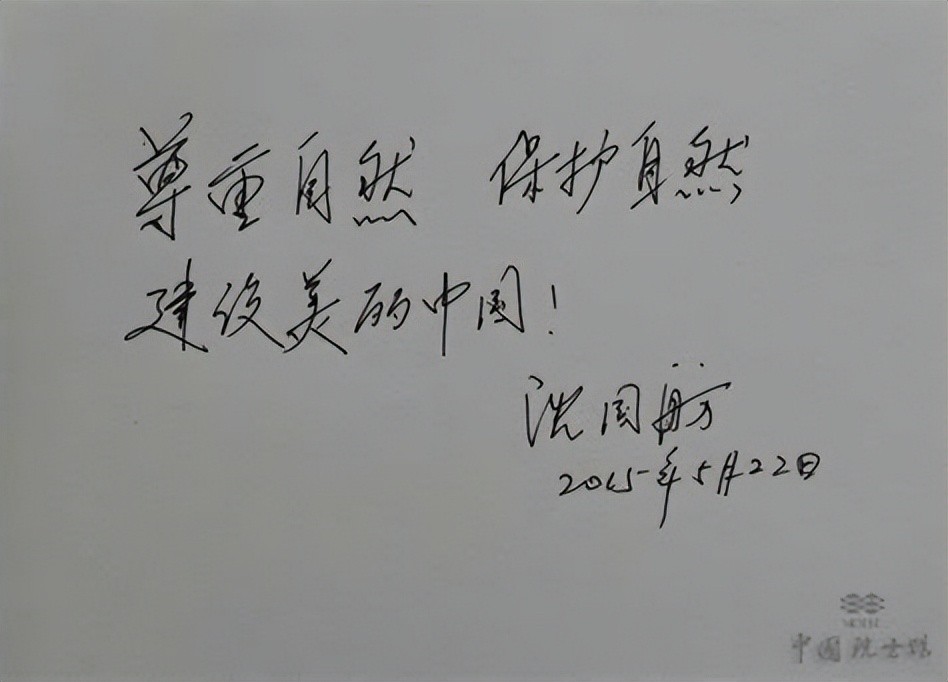 尊重自然 保护自然
建设美丽中国!
沈国舫
2015年5月22日
中国院士馆